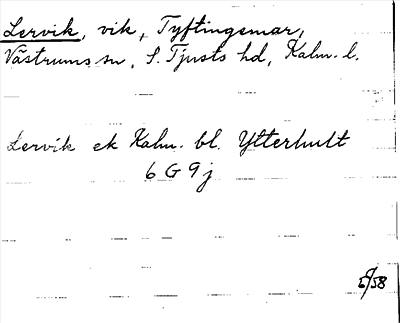 Lervik, vik, Tyftingemar,
Västrums sn, S. Tjusts hd, Kalm. l.
Lervik ek Kalm. bl. Ytterhult
6 G 9 j
58